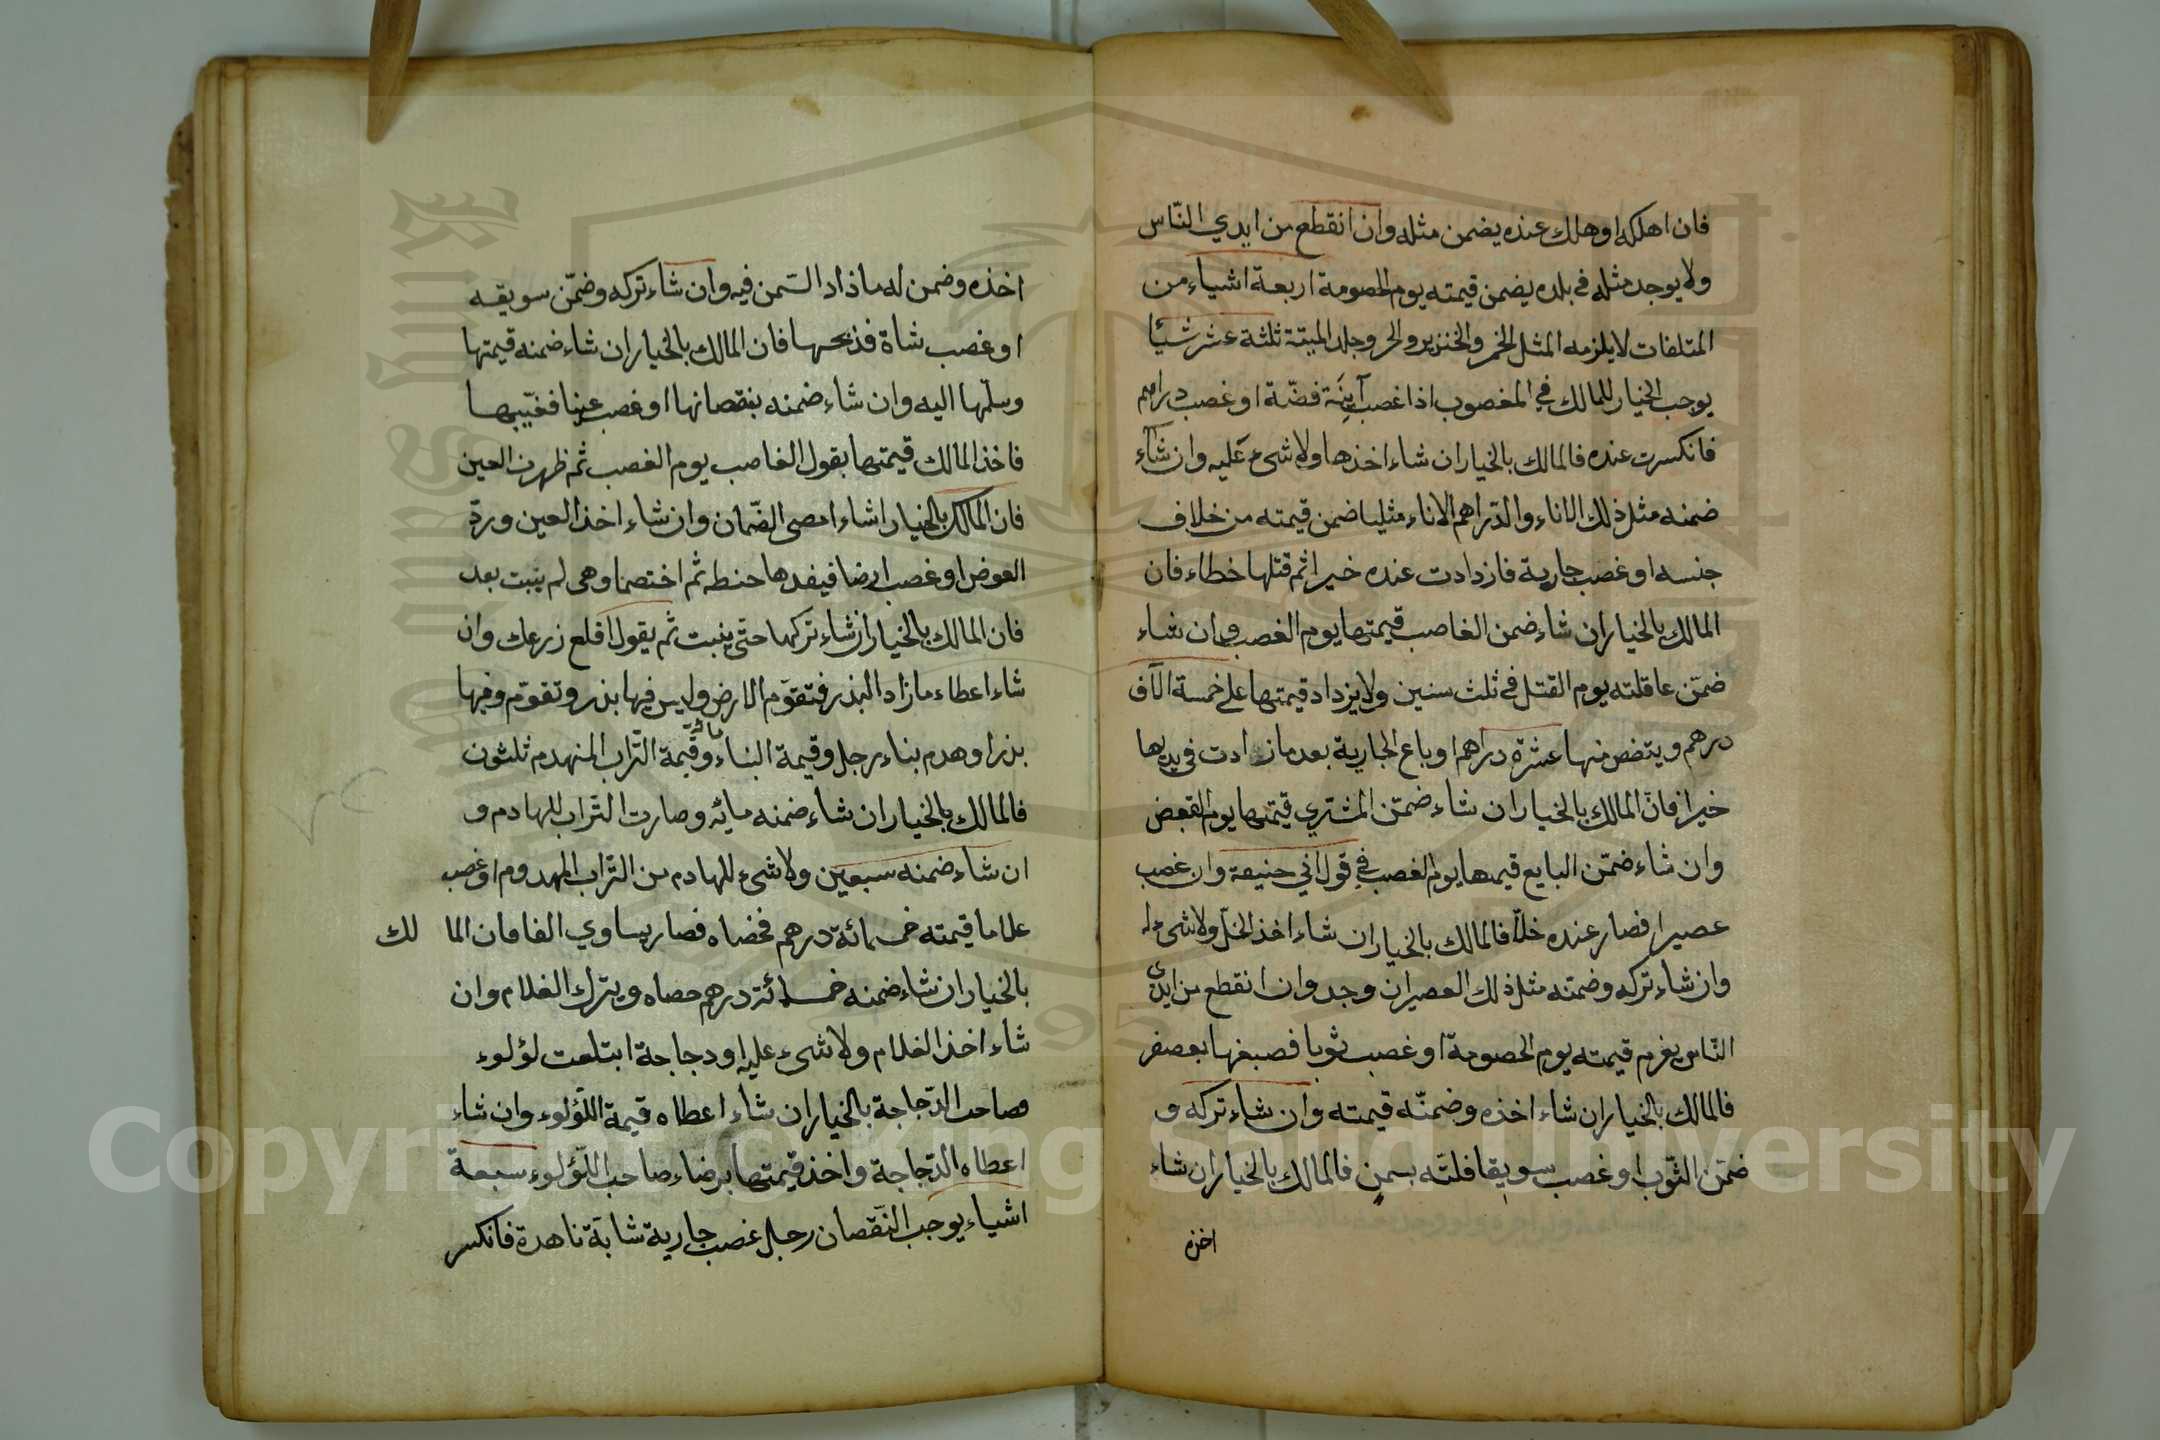 فان اهلكه او هلك عنده يضمن مثله وان انقطع من ايدي النّاس
ولا يوجد مثله في بلده يضمن قيمته يوم الخصومة اربعة اشياء من
المتلفات لا يلزمه المثل الخمر والخنزير والحر وجلد الميتة ثلثة عشر شيئا
يوجب الخيار للمالك في المغصوب اذا غصب آنية فضّة او غصب دراهم
فانكسرت عنده فالمالك بالخيار ان شاء اخذها ولا شيء عليه وان شاء
ضمنه مثل ذلك الاناء والدّراهم الاناء مثليا ضمن قيمته من خلاف
جنسه او غصب جارية فازدادت عنده خيرا ثم قتلها خطاء فان
المالك بالخيار ان شاء ضمن الغاصب قيمتها يوم الغصب وان شاء
ضمّن عاقلته يوم القتل في ثلث سنين ولا يزداد قيمتها على خمسة الآف
درهم وينقص منها عشرة دراهم او باع الجارية بعد ما زادت في يدها
خيرا فانّ المالك بالخيار ان شاء ضمّن المشتري قيمتها يوم القبض
وان شاء ضمّن البايع قيمتها يوم الغصب في قول ابي حنيفة وان غصب
عصيرا فصار عنده خلّا فالمالك بالخيار ان شاء اخذ الخلّ ولا شيء له
وان شاء تركه وضمنه مثل ذلك العصير ان وجد وان انقطع من ايدى
النّاس يغرم قيمته يوم الخصومة او غصب ثوبا فصبغها بعصفر
فالمالك بالخيار ان شاء اخذه وضمنّه قيمته وان شاء تركه و
ضمّن الثّوب او غصب سويقا فلتّه بسمن فالمالك بالخيار ان شاء
اخذه
اخذه وضمن له ما ذاد السّمن فيه وان شاء تركه وضمّن سويقه
او غصب شاة فذبحها فان المالك بالخيار ان شاء ضمنه قيمتها
وسلّمها اليه وان شاء ضمنه بنقصانها او غصب عينا فغيّبها
فاخذ المالك قيمتها بقول الغاصب يوم الغصب ثم ظهرت العين
فان المالك بالخيار ان شاء امضى الضّمان وان شاء اخذ العين وردّ
العوض او غصب ارضا فيفدها حنطه ثم اختصما وهى لم ينبت بعد
فان المالك بالخيار ان شاء تركها حتّى ينبت ثم يقول اقلع زرعك وان
شاء اعطاء ما زاد البذر فتقوّم الارض وليس فيها بذر وتقوّم وفيها
بذر او هدم بناء رجل وقيمة البناء مائة وقيمة التّراب المنهدم ثلثون
فالمالك بالخيار ان شاء ضمنه مايه وصارت التّراب للهادم و
ان شاء ضمنه سبعين ولا شيء للهادم من التّراب المهدوم او غصب
غلاما قيمته خمسمائة درهم فخصاه فصار يساوي الفا فان الما لك
بالخيار ان شاء ضمنه خمسمائة درهم حصاه ويترك الغلام وان
شاء اخذ الغلام ولا شيء عليه او دجاجة ابتلعت لؤلوء
فصاحب الدّجاجة بالخيار ان شاء اعطاه قيمة اللّؤلوء وان شاء
اعطاه الدّجاجة واخذ قيمتها برضاء صاحب اللّؤلوء سبعة
اشياء يوجب النّقصان رجل غصب جارية شابّة ناهدة فانكسر
Copyright © King Saud University